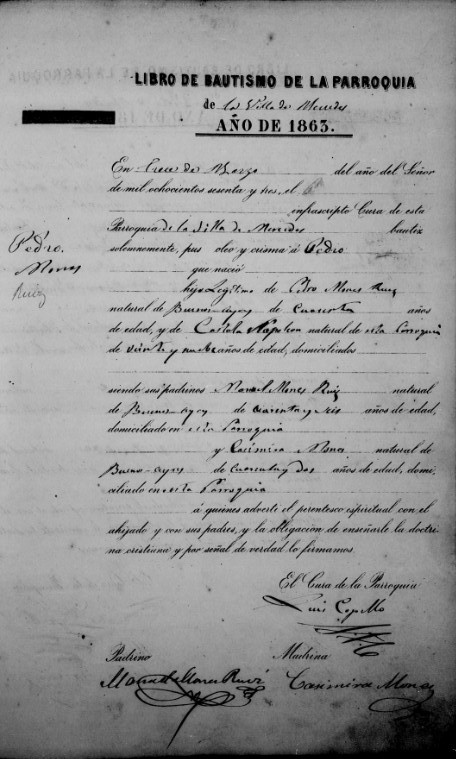 LIBRO DE BAUTISMO DE LA PARROQUIA
de la Villa de Mercedes
AÑO DE 1863.
En trece de Marzo del año del Señor
de mil ochocientos sesenta y tres, el
infrascripto Cura de esta
Parroquia de la Villa de Mercedes bautizó
solemnemente, puso oleo y crisma á Pedro
Pedro
Mones
Ruiz
que nació
hijo Legitimo de Pedro Mones Ruiz
natural de Buenos-Ayres de cuarenta años
de edad, y de Napoleon natural de esta Parroquia
de veinte y años de edad, domiciliados
siendo sus padrinos Manuel Mones Ruiz natural
de Buenos-Ayres de cuarenta y seis años de edad,
domiciliado en esta Parroquia
y Casimira Mones natural de
Buenos-Ayres de cuarenta y dos años de edad, domi-
ciliado en esta Parroquia
á quienes advertí el parentesco espiritual con el
ahijado y con sus padres, y la obligacion de enseñarle la doctri-
na cristiana y por señal de verdad lo firmamos.
El Cura de la Parroquia
Luis
Padrino Madrina
Manuel Mones Ruiz Casimira Mones